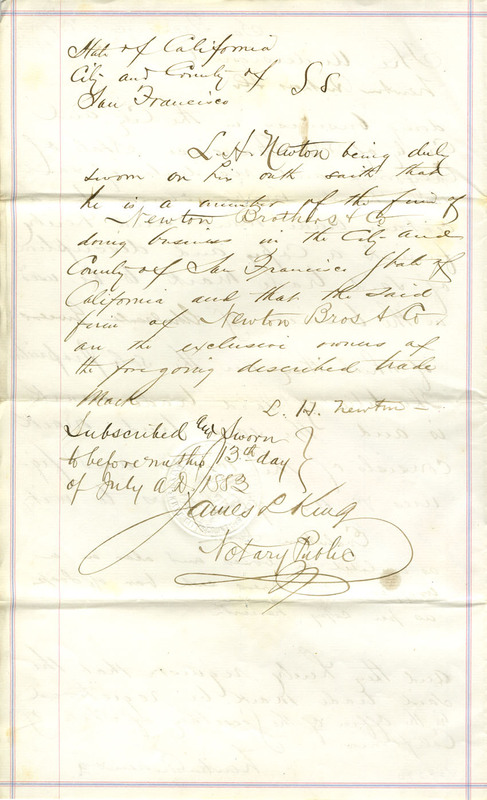 State of California
City and County of } SS
San Francisco
L. H. Newton being duly
sworn on his oath saith that
he is a member of the firm of
Newton Brothers & Co
doing business in the City and
County of San Francisco State of
California and that the said
firm of Newton Bros & Co
are the exclusive owners of
the foregoing described trade
Mark
L. H. Newton
Subscribed and Sworn
to before me this 13th day
of July A.D. 1883
James L King
Notary Public